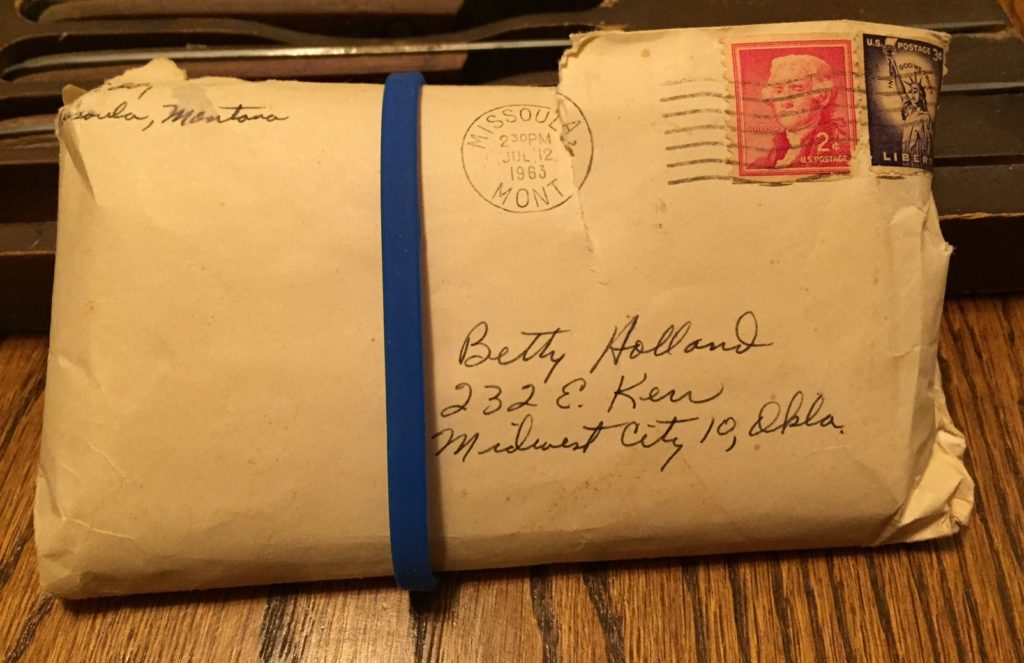 Missoula, Montana
MISSOULA
2 30 PM
JUL 12
1963
MONT
2¢
U.S. POSTAGE
U.S. POSTAGE 3¢
IN GOD WE
LIBER
Betty Holland
232 E. Kerr
Midwest City 10, Okla.